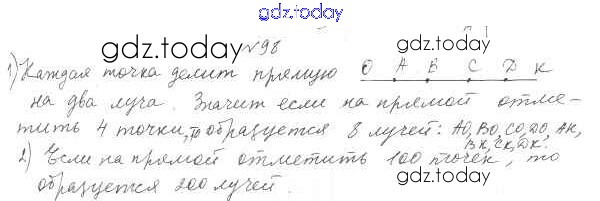 gdz.today
gdz.today №98 gdz.today
1) Каждая точка делит прямую O A B C D K
на два луча. Значит если на прямой отме-
тить 4 точки, то образуется 8 лучей: AO, BO, CO, DO, AK,
BK, CK, DK.
2) Если на прямой отметить 100 точек, то
образуется 200 лучей.
gdz.today gdz.today